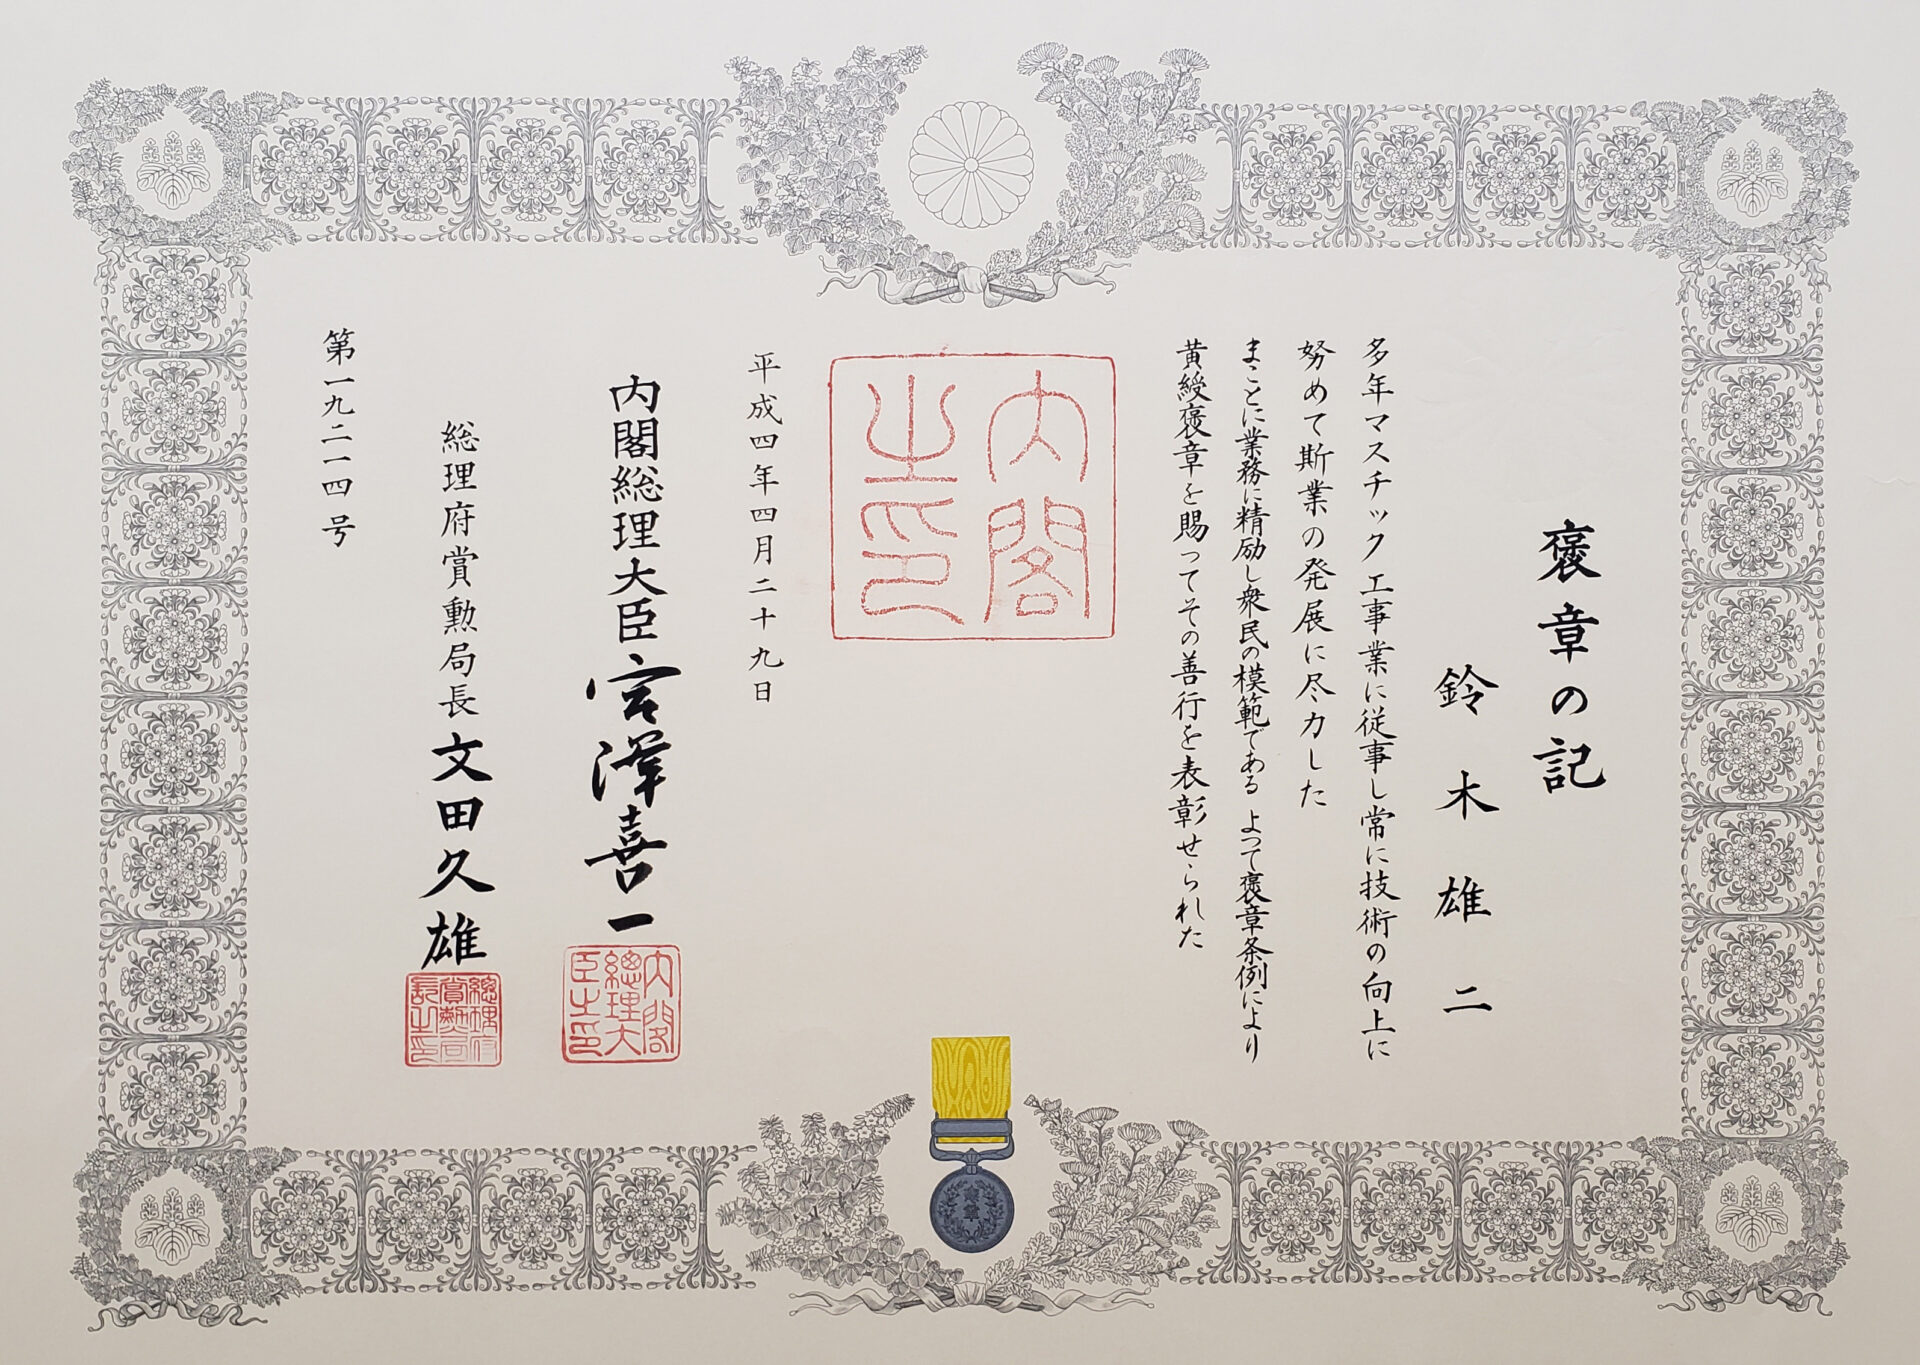 褒章の記
鈴木雄二
多年マスチック工事業に従事し常に技術の向上に
努めて斯業の発展に尽力した
まことに業務に精励し衆民の模範である よって褒章条例により
黄綬褒章を賜ってその善行を表彰せられた
内閣
之印
平成四年四月二十九日
内閣総理大臣 宮澤喜一
内閣
總理大
臣之印
総理府賞勲局長 文田久雄
總理府
賞勲局
長之印
第一九二一四号
褒章